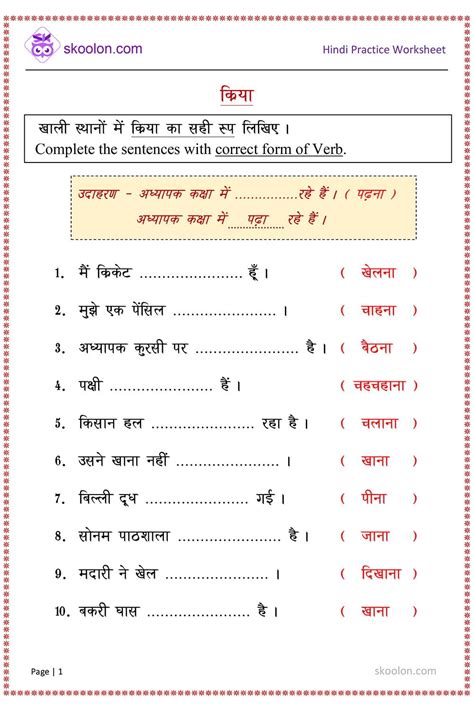 skoolon.com Hindi Practice Worksheet
किया
खाली स्थानों में किया का सही रूप लिखिए ।
Complete the sentences with correct form of Verb.
उदाहरण - अध्यापक कक्षा में ................रहे हैं । ( पढ़ना )
अध्यापक कक्षा में ....पढ़ा.... रहे हैं ।
1. मैं किकेट ....................... हूँ । ( खेलना )
2. मुझे एक पेंसिल ....................... । ( चाहना )
3. अध्यापक कुरसी पर ........................ है । ( बैठना )
4. पक्षी ........................ हैं । ( चहचहाना )
5. किसान हल ........................ रहा है । ( चलाना )
6. उसने खाना नहीं ....................... । ( खाना )
7. बिल्ली दूध ........................ गई । ( पीना )
8. सोनम पाठशाला ....................... है । ( जाना )
9. मदारी ने खेल ........................ । ( दिखाना )
10. बकरी घास ........................ है । ( खाना )
Page | 1 skoolon.com